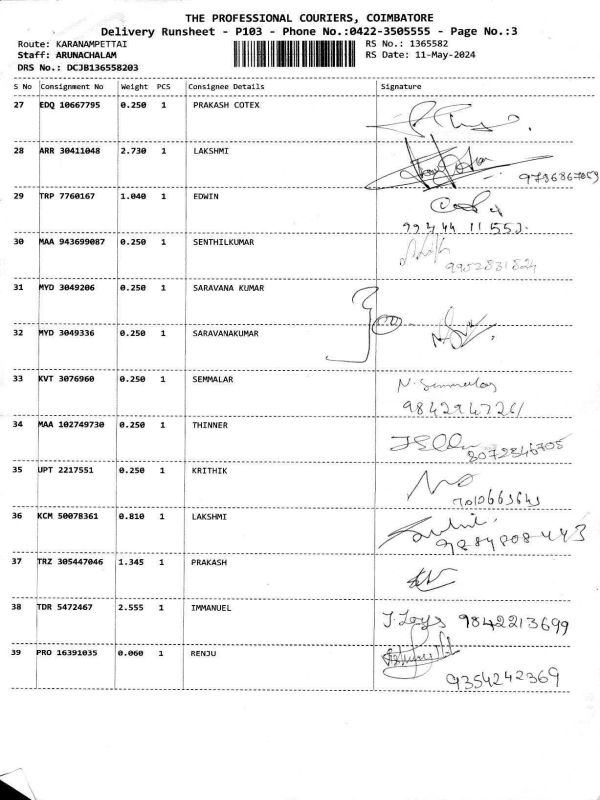 THE PROFESSIONAL COURIERS, COIMBATORE
Delivery Runsheet - P103 - Phone No.:0422-3505555 - Page No.:3
Route: KARANAMPETTAI RS No.: 1365582
Staff: ARUNACHALAM RS Date: 11-May-2024
DRS No.: DCJB136558203
S No Consignment No Weight PCS Consignee Details Signature
27 EDQ 10667795 0.250 1 PRAKASH COTEX
28 ARR 30411048 2.730 1 LAKSHMI
29 TRP 7760167 1.040 1 EDWIN
30 MAA 943699087 0.250 1 SENTHILKUMAR
31 MYD 3049206 0.250 1 SARAVANA KUMAR
32 MYD 3049336 0.250 1 SARAVANAKUMAR
33 KVT 3076960 0.250 1 SEMMALAR N. Semmalar
34 MAA 102749730 0.250 1 THINNER
8072346705
35 UPT 2217551 0.250 1 KRITHIK
36 KCM 50078361 0.810 1 LAKSHMI
37 TRZ 305447046 1.345 1 PRAKASH
38 TDR 5472467 2.555 1 IMMANUEL 9842213699
39 PRO 16391035 0.060 1 RENJU
9354242369